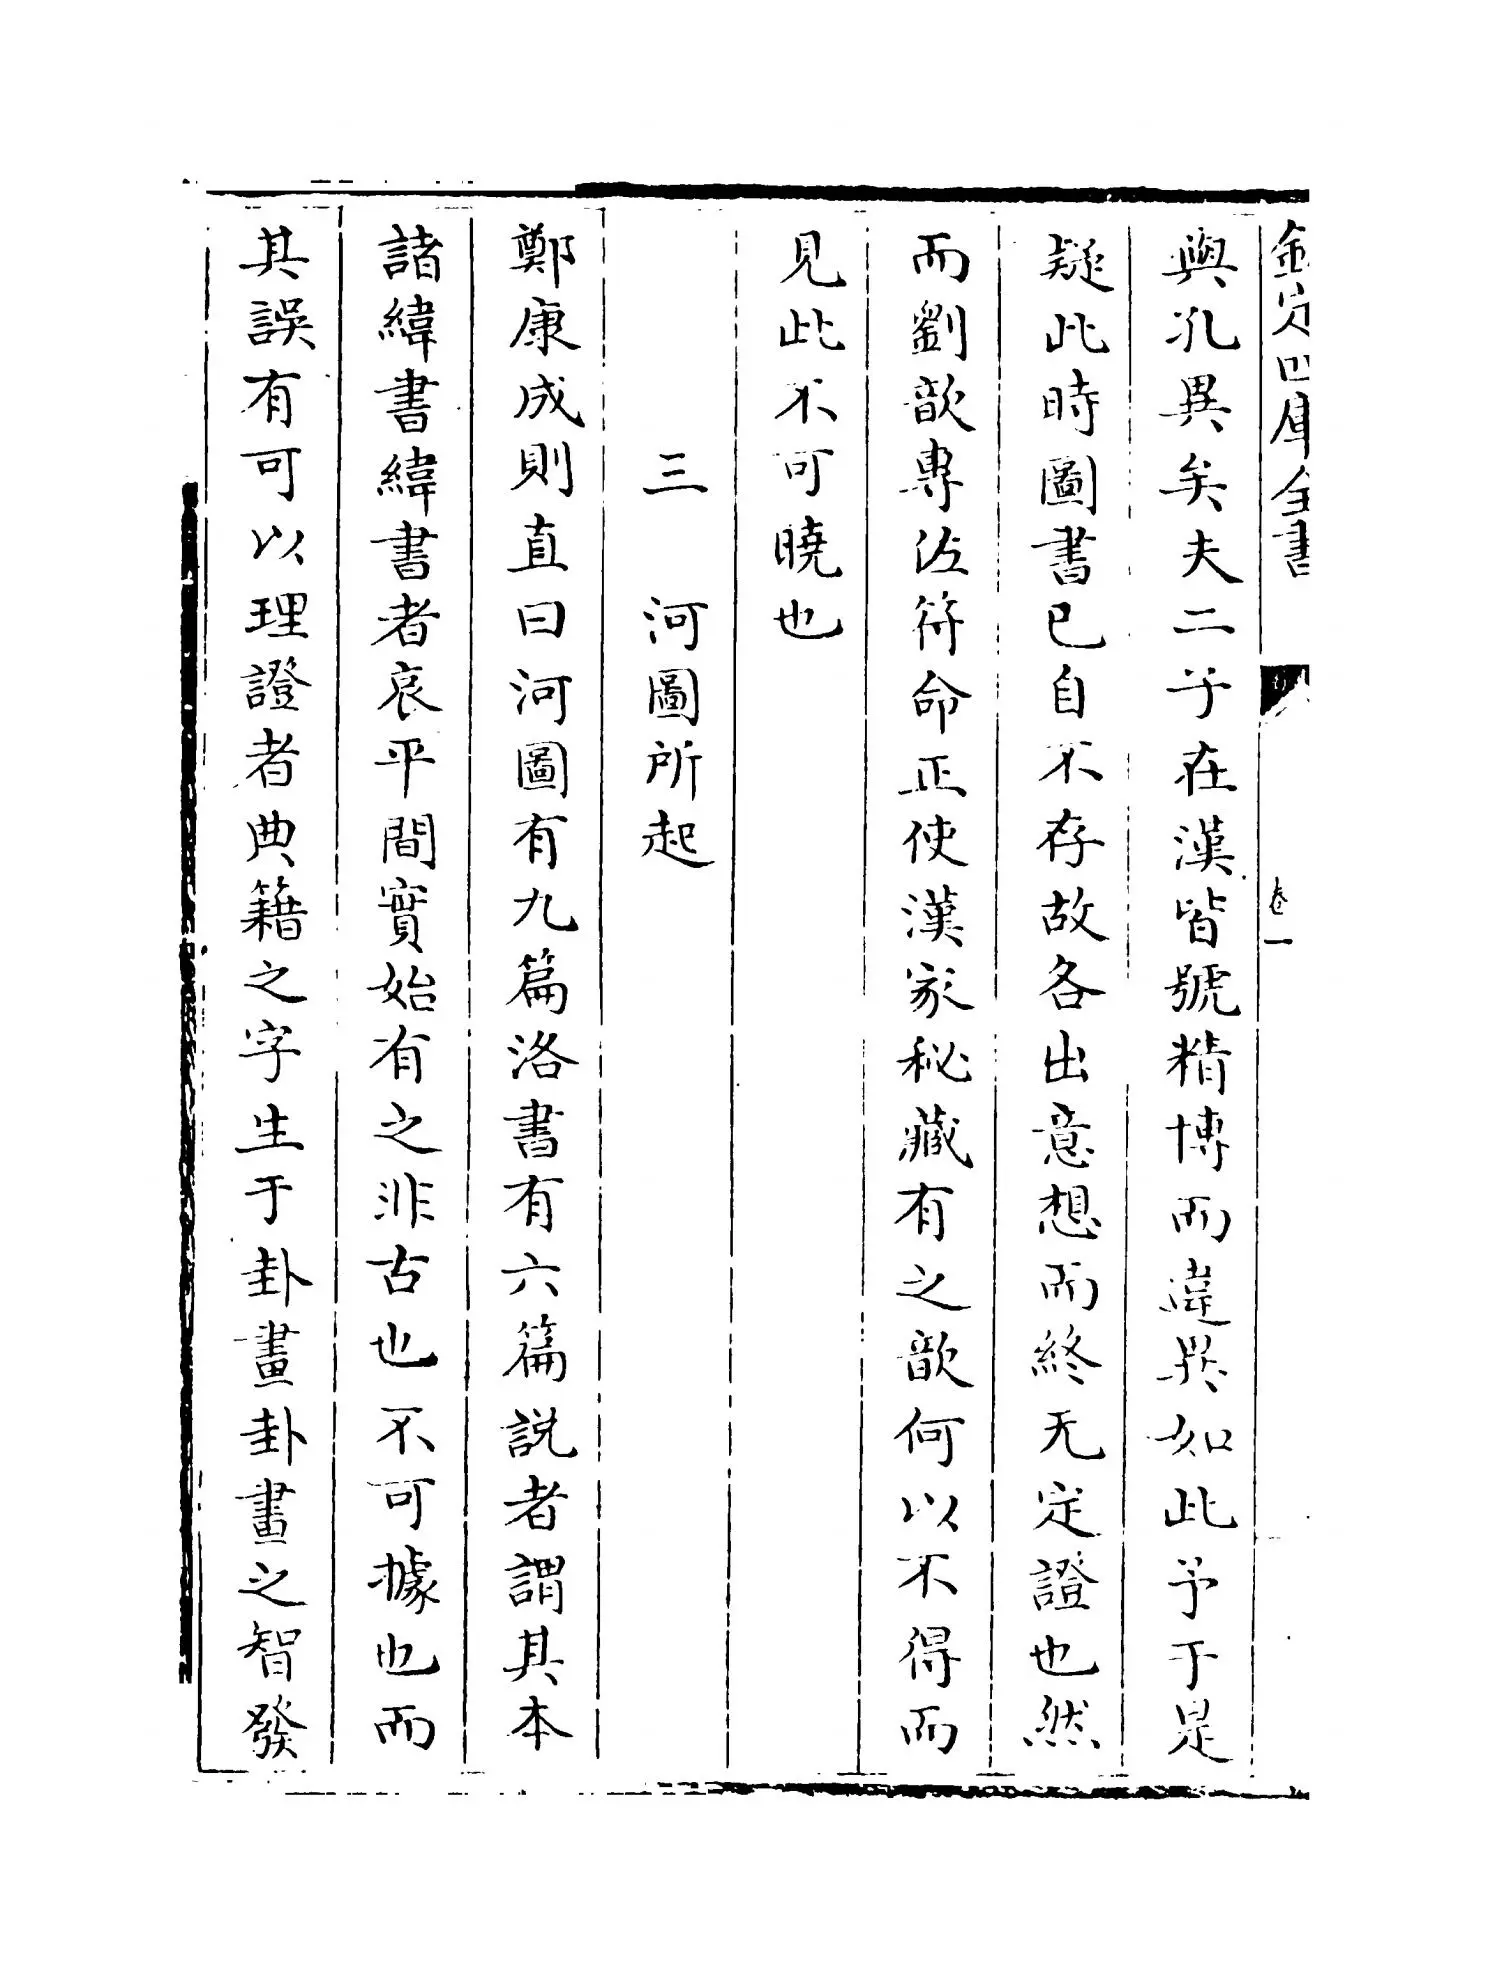 欽定四庫全書
卷一
與孔異矣夫二子在漢皆號精博而違異如此予于是
疑此時圖書已自不存故各出意想而終无定證也然
而劉歆專佐符命正使漢家秘藏有之歆何以不得而
見此不可曉也
三 河圖所起
鄭康成則直曰河圖有九篇洛書有六篇說者謂其本
諸緯書緯書者哀平間實始有之非古也不可據也而
其誤有可以理證者典籍之字生于卦畫卦畫之智發